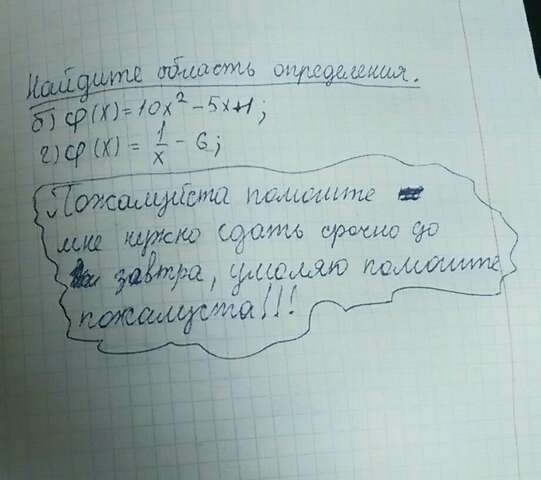 Найдите область определения.
б) φ(x)=10x²-5x+1;
г) φ(x)=1/x-6;
Пожалуйста помоште
мне нужно сдать срочно до
завтра, умоляю помоште
пожалуста!!!